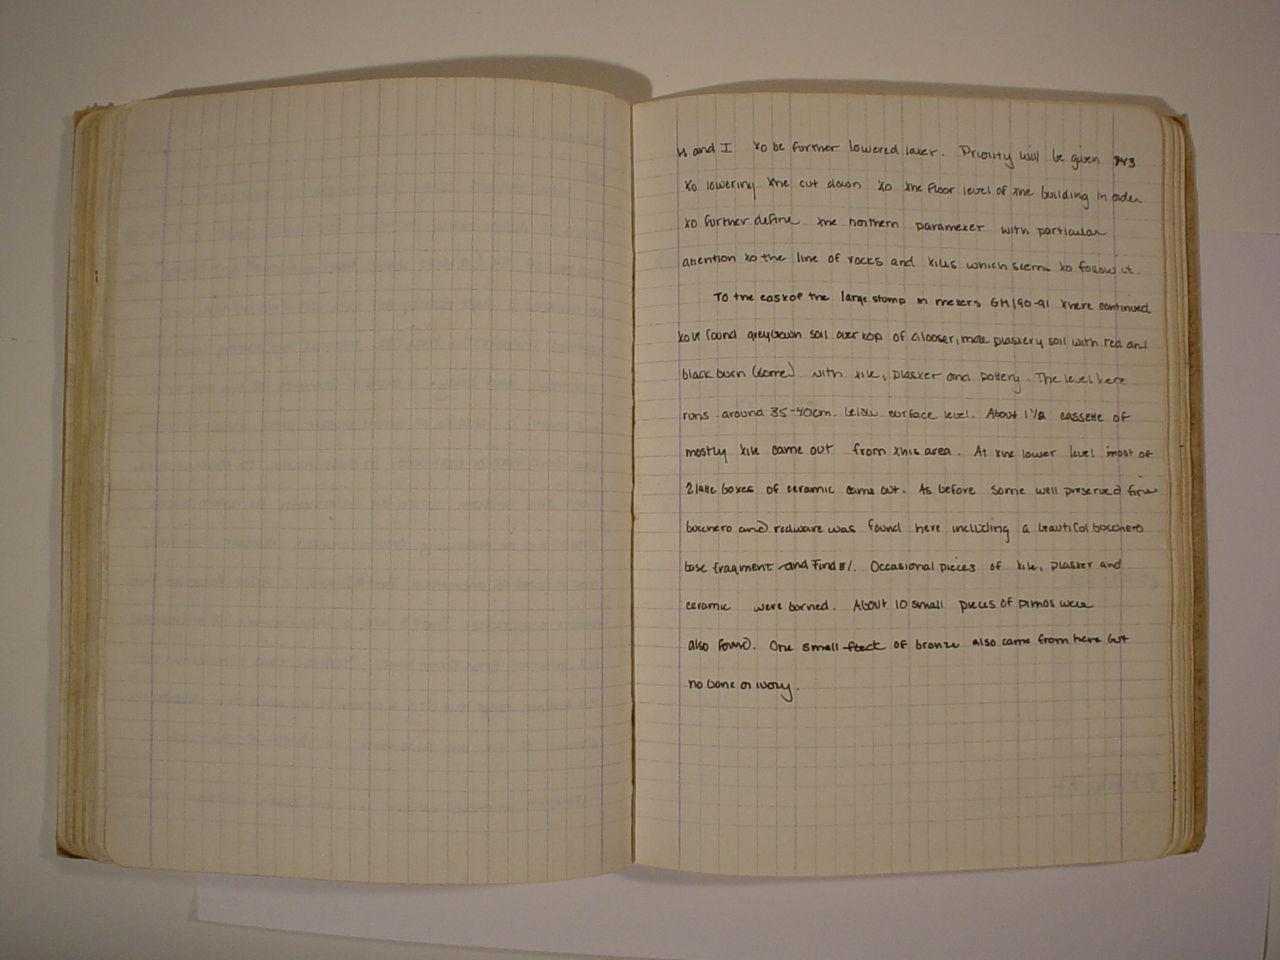 H and I to be further lowered later. Priority will be given 243
to lowering the cut down to the floor level of the building in order
to further define the northern parameter with particular
attention to the line of rocks and tiles which seems to follow it.
To the east of the large stump in meters GH/90-91 there continued
to be found greybrown soil over top of a looser, more plastery soil with red and
black burn (some) with tile, plaster and pottery. The level here
runs around 35-40cm. below surface level. About 1 1/2 cassette of
mostly tile came out from this area. At the lower level most of
2 latte boxes of ceramic came out. As before some well preserved fine
bucchero and redware was found here including a beautiful bucchero
base fragment and Find #1. Occasional pieces of tile, plaster and
ceramic were burned. About 10 small pieces of pithos were
also found. One small fleck of bronze also came from here but
no bone or ivory.